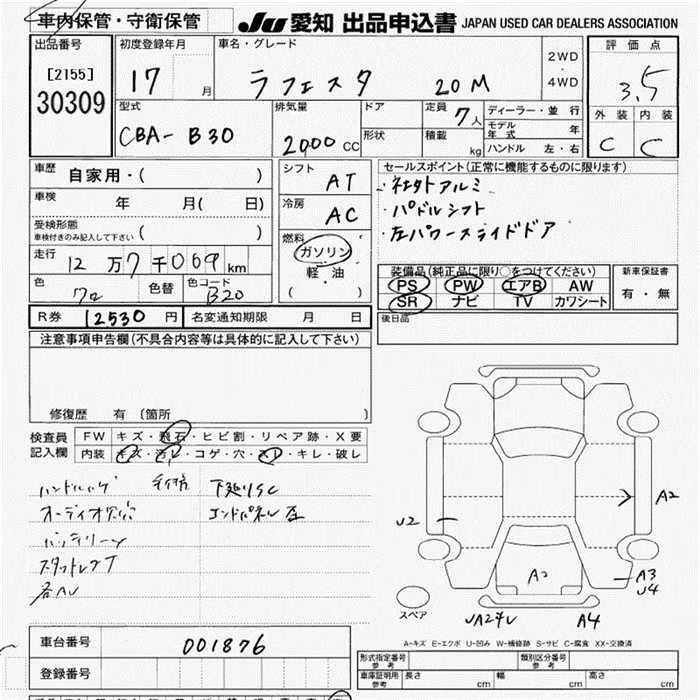 車内保管・守衛保管
JU 愛知 出品申込書 JAPAN USED CAR DEALERS ASSOCIATION
出品番号
[2155]
30309
初度登録年月
17 月
車名・グレード
ラフェスタ 20M
2WD
・
4WD
評価点
3.5
外装 内装
C C
型式
CBA-B30
排気量
2000 CC
ドア
形状
定員 7人
積載 kg
ディーラー・並行
モデル年式 年
ハンドル 左・右
車歴 自家用・( )
車検 年 月( 日)
受検形態
車検付きのみ記入して下さい ( )
走行 12万7千069km
色 色替 色コード B20
シフト AT
冷房 AC
燃料
ガソリン
軽・油
( )
セールスポイント(正常に機能するものに限ります)
・パドルシフト
・左パワースライドドア
装備品(純正品に限り○をつけてください)
PS PW エアB AW
SR ナビ TV カワシート
新車保証書
有・無
後日品
R券 12530 円 名変通知期限 月 日
注意事項申告欄(不具合内容等は具体的に記入して下さい)
修復歴 有 (箇所 )
検査員記入欄
FW キズ・飛石・ヒビ割・リペア跡・X要
内装 キズ・汚レ・コゲ・穴・スレ・キレ・破レ
ハンドルハゲ
下廻りSC
エンドパネル 左
A2
U2
A3
U4
A4
スペア
A-キズ E-エクボ U-凹み W-補修跡 S-サビ C-腐食 XX-交換済
車台番号 001876
登録番号
形式指定番号 参考
類別区分番号 参考
車庫証明用 参考 長さ cm 幅 cm 高さ cm